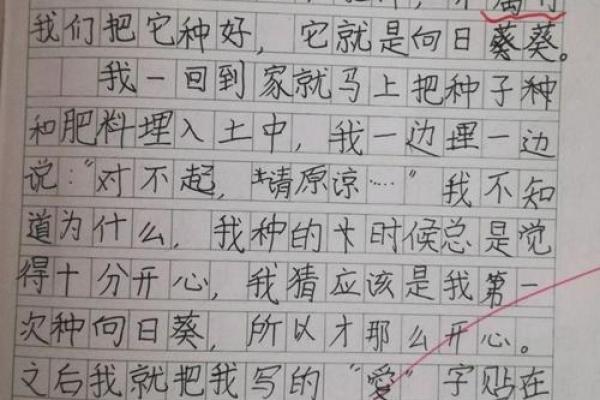 我们把它种好，它就是向日葵葵。
我一回到家就马上把种子种
和肥料埋入土中，我一边埋一边
说：“对不起，请原谅……”我不知
道为什么，我种的卡时候总是觉
得十分开心，我猜应该是我第一
次种向日葵，所以才那么开心。
之后我就把我写的“爱”字贴在